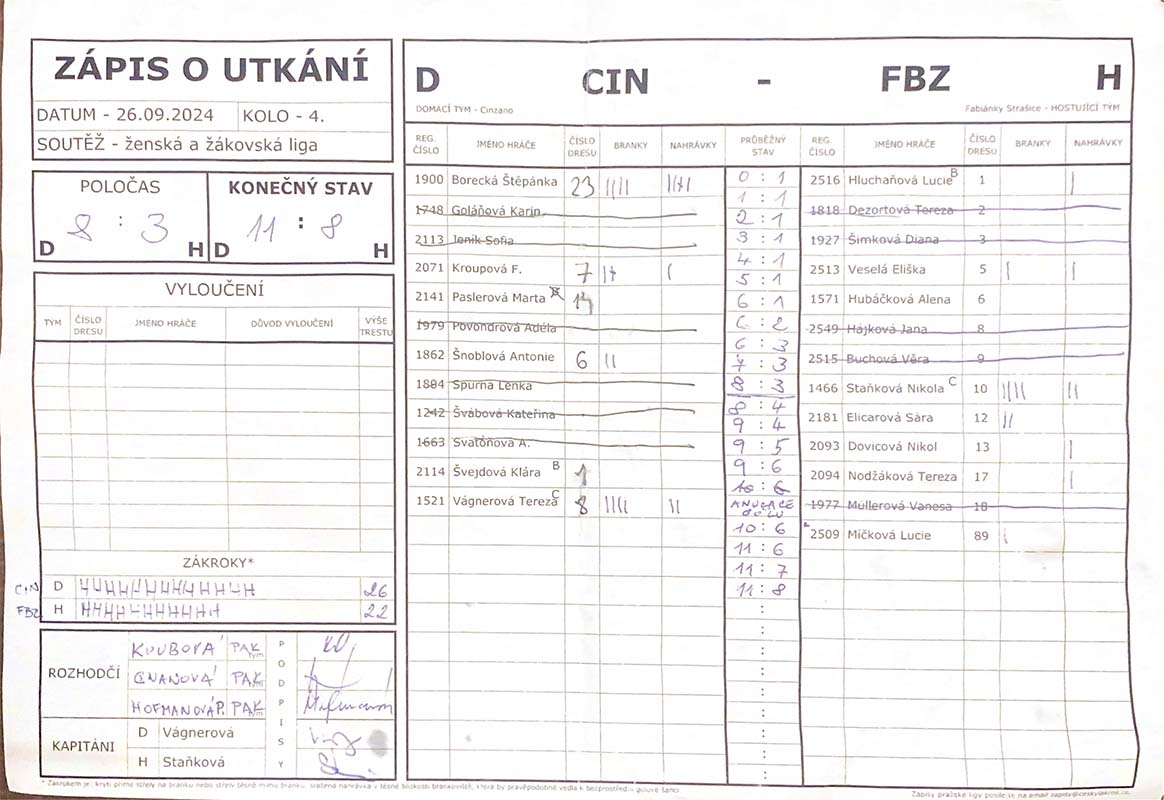 ZÁPIS O UTKÁNÍ
DATUM - 26.09.2024 KOLO - 4.
SOUTĚŽ - ženská a žákovská liga
POLOČAS KONEČNÝ STAV
8 : 3 11 : 8
D H D H
VYLOUČENÍ
TÝM ČÍSLO DRESU JMÉNO HRÁČE DŮVOD VYLOUČENÍ VÝŠE TRESTU
ZÁKROKY*
CIN D 26
FBZ H 22
ROZHODČÍ
KOUBOVÁ PAK tým
CNANOVÁ PAK tým
HOFMANOVÁ P. PAK tým
PODPISY
KAPITÁNI
D Vágnerová
H Staňková
D CIN - FBZ H
DOMACÍ TÝM - Cinzano Fabiánky Strašice - HOSTUJÍCÍ TÝM
REG. ČÍSLO JMÉNO HRÁČE ČÍSLO DRESU BRANKY NAHRÁVKY PRŮBĚŽNÝ STAV REG. ČÍSLO JMÉNO HRÁČE ČÍSLO DRESU BRANKY NAHRÁVKY
1900 Borecká Štěpánka 23
1748 Goláňová Karin
2113 Jeník Sofia
2071 Kroupová F. 7
2141 Paslerová Marta B 14
1979 Povondrová Adéla
1862 Šnoblová Antonie 6
1884 Spurná Lenka
1242 Švábová Kateřina
1663 Svatoňová A.
2114 Švejdová Klára B 1
1521 Vágnerová Tereza C 8
0 : 1
1 : 1
2 : 1
3 : 1
4 : 1
5 : 1
6 : 1
6 : 2
6 : 3
7 : 3
8 : 3
8 : 4
9 : 4
9 : 5
9 : 6
10 : 6
ANULACE
GÓLU
10 : 6
11 : 6
11 : 7
11 : 8
:
:
:
:
:
:
:
:
2516 Hluchaňová Lucie B 1
1818 Dezortová Tereza 2
1927 Šimková Diana 3
2513 Veselá Eliška 5
1571 Hubáčková Alena 6
2549 Hájková Jana 8
2515 Buchová Věra 9
1466 Staňková Nikola C 10
2181 Elicarová Sára 12
2093 Dovicová Nikol 13
2094 Nodžáková Tereza 17
1977 Mullerová Vanesa 18
2509 Míčková Lucie 89